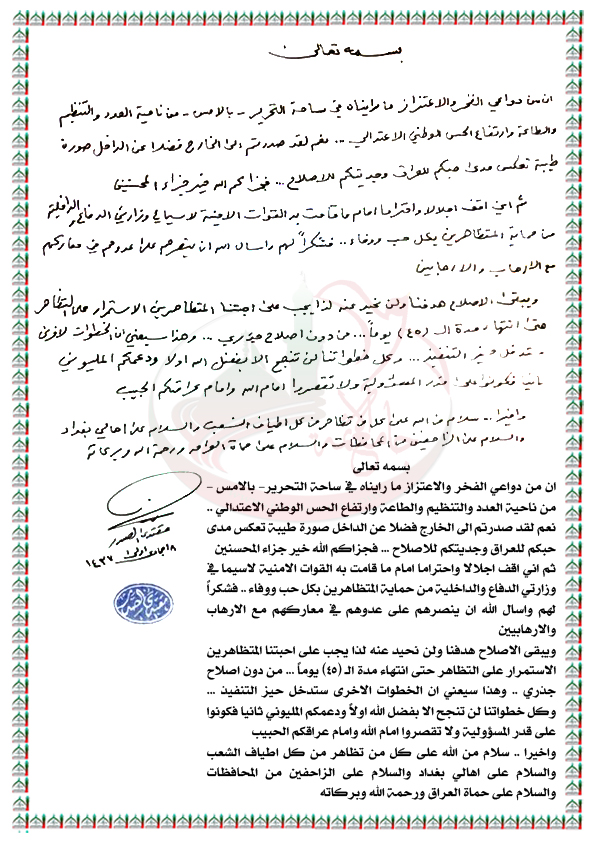 بسمه تعالى
ان من دواعي الفخر والاعتزاز ما رايناه في ساحة التحرير - بالامس - من ناحية العدد والتنظيم
والطاعة وارتفاع الحس الوطني الاعتدالي .. نعم لقد صدرتم الى الخارج فضلا عن الداخل صورة
طيبة تعكس مدى حبكم للعراق وجديتكم للاصلاح ... فجزاكم الله خير جزاء المحسنين
ثم اني اقف اجلالا واحتراما امام ما قامت به القوات الامنية لاسيما في وزارتي الدفاع والداخلية
من حماية المتظاهرين بكل حب ووفاء .. فشكراً لهم واسال الله ان ينصرهم على عدوهم في معاركهم
مع الارهاب والارهابيين
ويبقى الاصلاح هدفنا ولن نحيد عنه لذا يجب على احبتنا المتظاهرين الاستمرار على التظاهر
حتى انتهاء مدة الـ (٤٥) يوماً ... من دون اصلاح جذري .. وهذا سيعني ان الخطوات الاخرى
ستدخل حيز التنفيذ ... وكل خطواتنا لن تنجح الا بفضل الله اولا ودعمكم المليوني
ثانيا فكونوا على قدر المسؤولية ولا تقصروا امام الله وامام عراقكم الحبيب
واخيرا .. سلام من الله على كل من تظاهر من كل اطياف الشعب والسلام على اهالي بغداد
والسلام على الزاحفين من المحافظات والسلام على حماة العراق ورحمة الله وبركاته
مقتدى الصدر
١٨ جمادي الاولى ١٤٣٧
بسمه تعالى
ان من دواعي الفخر والاعتزاز ما رايناه في ساحة التحرير- بالامس -
من ناحية العدد والتنظيم والطاعة وارتفاع الحس الوطني الاعتدالي ..
نعم لقد صدرتم الى الخارج فضلا عن الداخل صورة طيبة تعكس مدى
حبكم للعراق وجديتكم للاصلاح ... فجزاكم الله خير جزاء المحسنين
ثم اني اقف اجلالا واحتراما امام ما قامت به القوات الامنية لاسيما في
وزارتي الدفاع والداخلية من حماية المتظاهرين بكل حب ووفاء .. فشكراً
لهم واسال الله ان ينصرهم على عدوهم في معاركهم مع الارهاب
والارهابيين
ويبقى الاصلاح هدفنا ولن نحيد عنه لذا يجب على احبتنا المتظاهرين
الاستمرار على التظاهر حتى انتهاء مدة الـ (٤٥) يوماً ... من دون اصلاح
جذري .. وهذا سيعني ان الخطوات الاخرى ستدخل حيز التنفيذ ...
وكل خطواتنا لن تنجح الا بفضل الله اولاً ودعمكم المليوني ثانيا فكونوا
على قدر المسؤولية ولا تقصروا امام الله وامام عراقكم الحبيب
واخيرا .. سلام من الله على كل من تظاهر من كل اطياف الشعب
والسلام على اهالي بغداد والسلام على الزاحفين من المحافظات
والسلام على حماة العراق ورحمة الله وبركاته